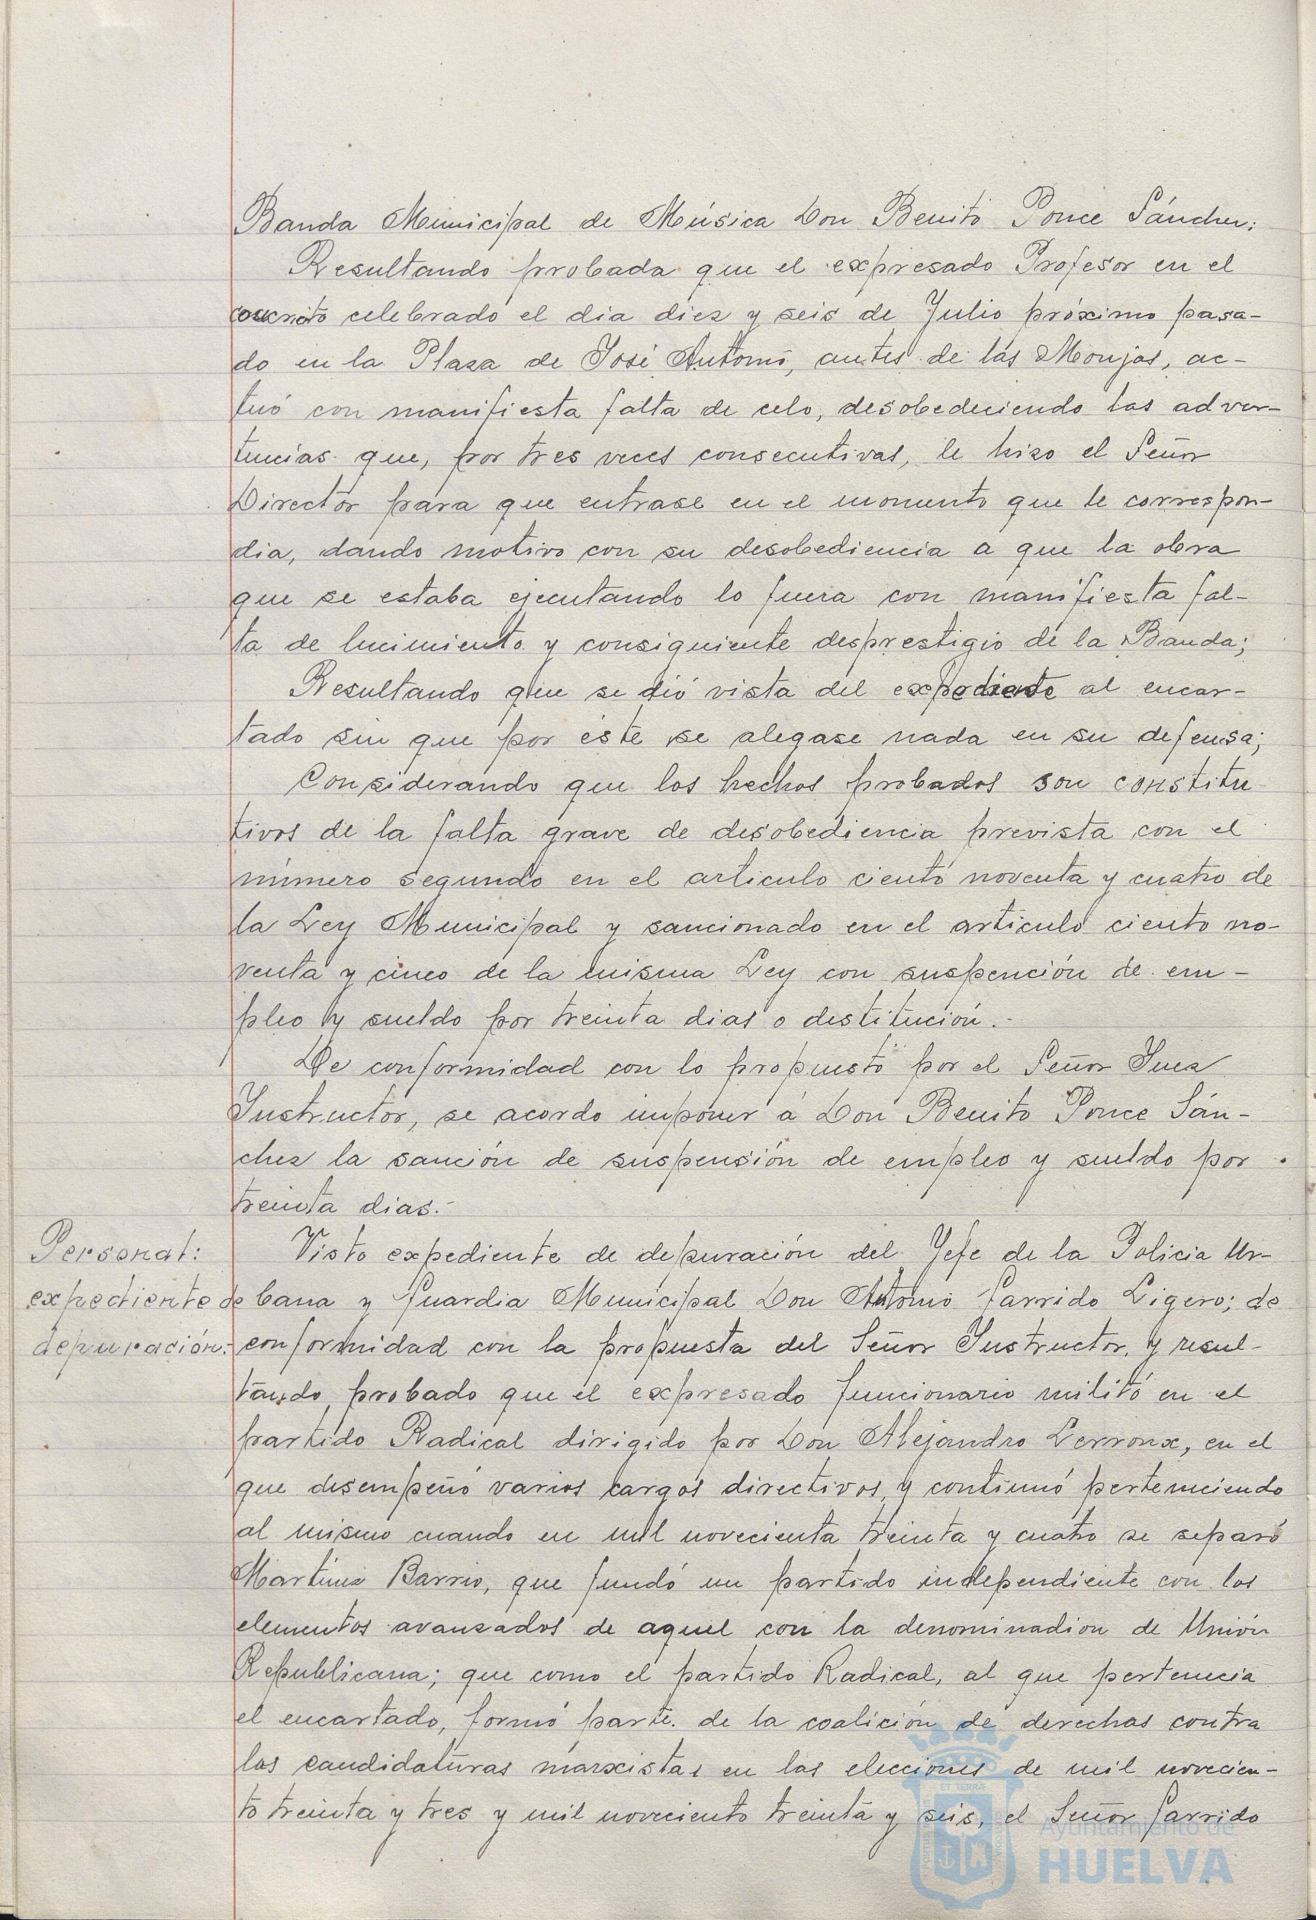 Banda Municipal de Música Don Benito Ponce Sánchez;
Resultando probada que el expresado Profesor en el
concierto celebrado el dia diez y seis de Julio próximo pasa-
do en la Plaza de José Antonio, antes de las Monjas, ac-
tuó con manifiesta falta de celo, desobedeciendo las adver-
tencias que, por tres veces consecutivas, le hizo el Señor
Director para que entrase en el momento que le correspon-
dia, dando motivo con su desobediencia a que la obra
que se estaba ejecutando lo fuera con manifiesta fal-
ta de lucimiento y consiguiente desprestigio de la Banda;
Resultando que se dió vista del expediente al encar-
tado sin que por éste se alegase nada en su defensa;
Considerando que los hechos probados son constitu-
tivos de la falta grave de desobediencia prevista con el
número segundo en el articulo ciento noventa y cuatro de
la Ley Municipal y sancionado en el articulo ciento no-
venta y cinco de la misma Ley con suspención de em-
pleo y sueldo por treinta dias o destitución.-
De conformidad con lo propuesto por el Señor Juez
Instructor, se acordo imponer á Don Benito Ponce Sán-
chez la sanción de suspensión de empleo y sueldo por
treinta dias.-
Personal:
expediente de
depuración:
Visto expediente de depuración del Jefe de la Policia Ur-
bana y Guardia Municipal Don Antonio Garrido Ligero; de
conformidad con la propuesta del Señor Instructor, y resul-
tando, probado que el expresado funcionario militó en el
partido Radical dirigido por Don Alejandro Lerroux, en el
que desempeñó varios cargos directivos, y continuó perteneciendo
al mismo cuando en mil novecienta treinta y cuatro se separó
Martínez Barrio, que fundó un partido independiente con los
elementos avanzados de aquel con la denominadion de Unión
Republicana; que como el partido Radical, al que pertenecia
el encartado, formó parte de la coalición de derechas contra
las candidaturas marxistas en las elecciones de mil novecien-
to treinta y tres y mil noveciento treinta y seis, el Señor Garrido
Ayuntamiento de
HUELVA